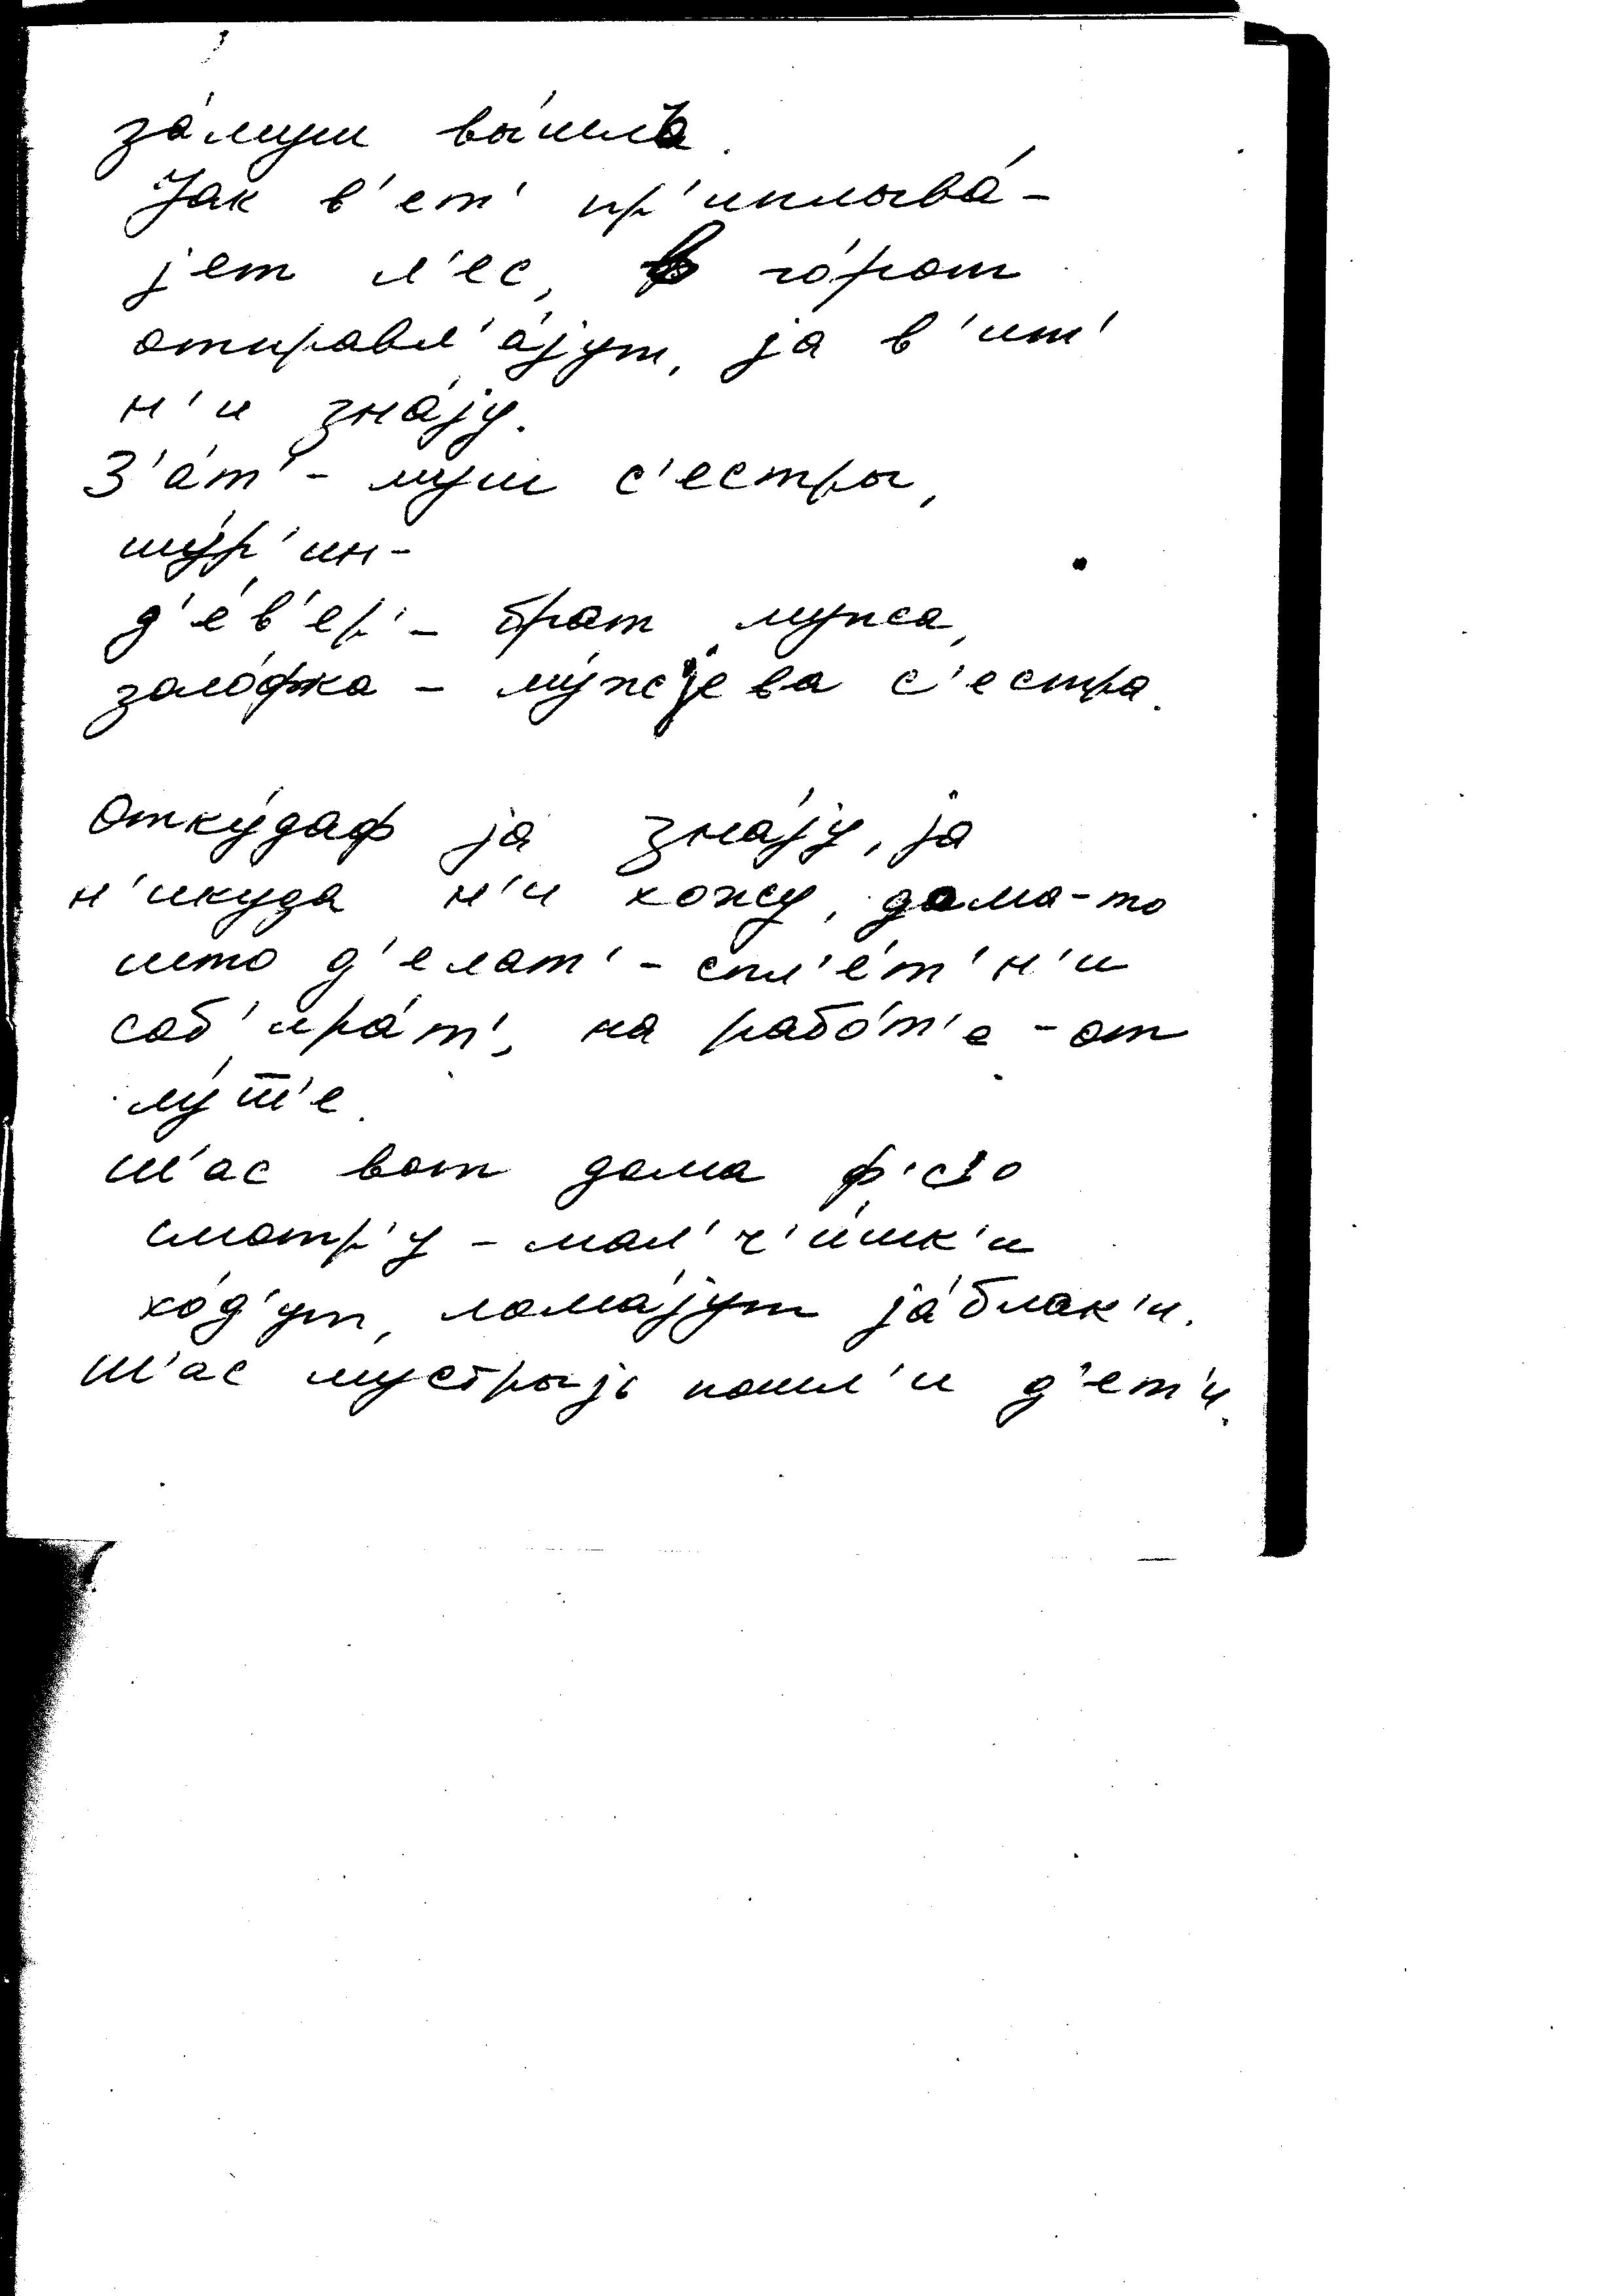 за́муш вы́шла.
Jак в'ет' пр'иплыва́-
jет л'ес, в го́рот
отправл'а́jут, jа в'ит'
н'и зна́jу.
З'а́т' - муш с'естры,
шу́р'ин-
д'е́в'ер' - брат мужа,
золо́фка - му́жjева с'естра.
Отку́даф jа зна́jу, jа
н'икуда н'и хожу, дома-то
што д'елат' - спл'е́т'н'и
соб'ира́т', на рабо́т'е - от
лу́т̅'е.
Ш'ас вот дома ф'с'о
смотр'у - мал'ч'и́шк'и
хо́д'ут, лома́jут jа́блак'и.
Ш'ас му́стрыjь пошл'и д'ет'и.